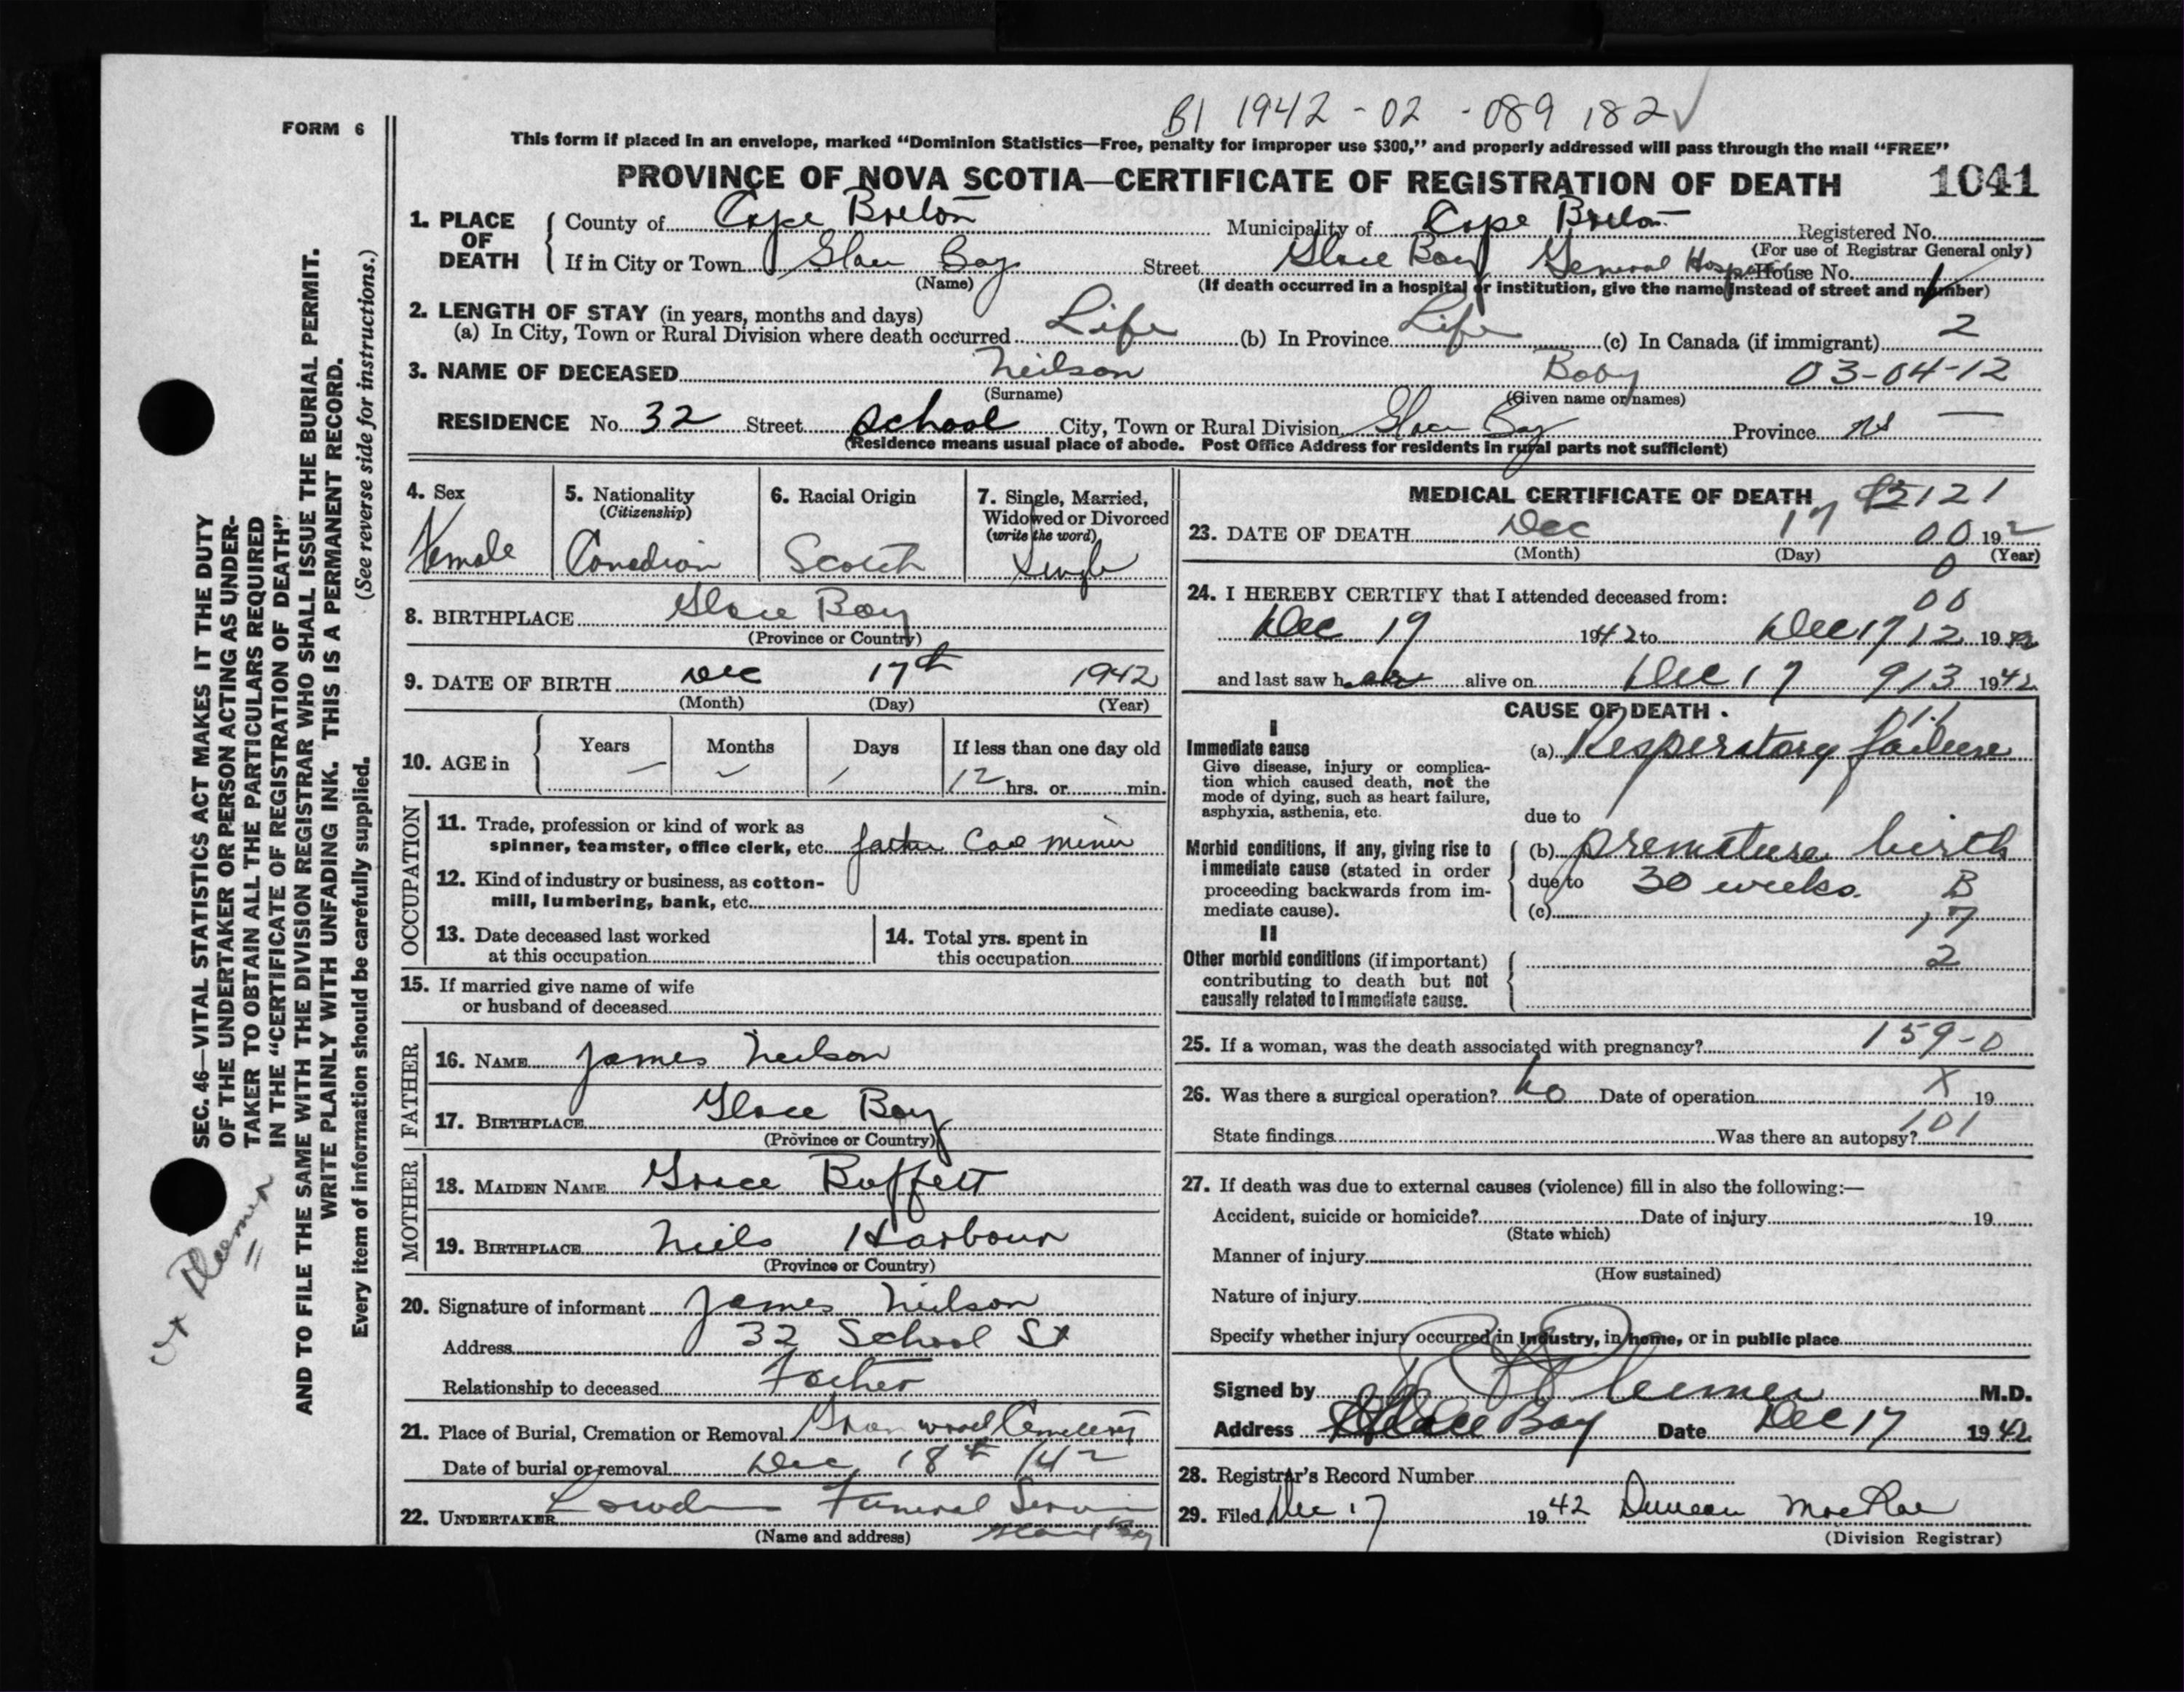 B1 1942 - 02 - 089 182 ✓
FORM 6
This form if placed in an envelope, marked "Dominion Statistics—Free, penalty for improper use $300," and properly addressed will pass through the mail "FREE"
PROVINCE OF NOVA SCOTIA—CERTIFICATE OF REGISTRATION OF DEATH 1041
1. PLACE OF DEATH County of Cape Breton Municipality of Cape Breton Registered No.
(For use of Registrar General only)
If in City or Town Glace Bay Street Glace Bay General Hospital House No. 1
(Name) (If death occurred in a hospital or institution, give the name instead of street and number)
2. LENGTH OF STAY (in years, months and days)
(a) In City, Town or Rural Division where death occurred Life (b) In Province Life (c) In Canada (if immigrant) 2
3. NAME OF DECEASED Neilson Baby 03-04-12
(Surname) (Given name or names)
RESIDENCE No. 32 Street School City, Town or Rural Division Glace Bay Province NS —
(Residence means usual place of abode. Post Office Address for residents in rural parts not sufficient)
4. Sex
Female
5. Nationality
(Citizenship)
Canadian
6. Racial Origin
Scotch
7. Single, Married, Widowed or Divorced
(write the word)
Single
8. BIRTHPLACE Glace Bay
(Province or Country)
9. DATE OF BIRTH Dec 17th 1942
(Month) (Day) (Year)
10. AGE in Years — Months — Days / If less than one day old
12 hrs. or min.
OCCUPATION
11. Trade, profession or kind of work as
spinner, teamster, office clerk, etc. father Coal Miner
12. Kind of industry or business, as cotton-
mill, lumbering, bank, etc.
13. Date deceased last worked
at this occupation
14. Total yrs. spent in
this occupation
15. If married give name of wife
or husband of deceased
FATHER
16. NAME James Neilson
17. BIRTHPLACE Glace Bay
(Province or Country)
MOTHER
18. MAIDEN NAME Grace Buffett
19. BIRTHPLACE Neils Harbour
(Province or Country)
20. Signature of informant James Neilson
Address 32 School St
Relationship to deceased Father
21. Place of Burial, Cremation or Removal Cemetery
Date of burial or removal Dec 18th /42
22. UNDERTAKER Funeral Service
(Name and address) Glace Bay
MEDICAL CERTIFICATE OF DEATH 121
23. DATE OF DEATH Dec 17 00 192
(Month) (Day) (Year)
0
24. I HEREBY CERTIFY that I attended deceased from: 00
Dec 17 1942 to Dec 17 12 1942
and last saw her alive on Dec 17 913 1942
CAUSE OF DEATH
11
I
Immediate cause
Give disease, injury or complica-
tion which caused death, not the
mode of dying, such as heart failure,
asphyxia, asthenia, etc.
(a) Resperatory failure
due to
Morbid conditions, if any, giving rise to
immediate cause (stated in order
proceeding backwards from im-
mediate cause).
(b) premature birth
due to 30 weeks. B
(c) 17
II
Other morbid conditions (if important)
contributing to death but not
causally related to immediate cause.
2
25. If a woman, was the death associated with pregnancy? 159-0
26. Was there a surgical operation? No Date of operation X 19
State findings Was there an autopsy? 101
27. If death was due to external causes (violence) fill in also the following:—
Accident, suicide or homicide? Date of injury 19
(State which)
Manner of injury
(How sustained)
Nature of injury
Specify whether injury occurred in Industry, in home, or in public place
Signed by M.D.
Address Glace Bay Date Dec 17 1942
28. Registrar's Record Number
29. Filed Dec 17 1942 Duncan MacRae
(Division Registrar)
SEC. 46—VITAL STATISTICS ACT MAKES IT THE DUTY
OF THE UNDERTAKER OR PERSON ACTING AS UNDER-
TAKER TO OBTAIN ALL THE PARTICULARS REQUIRED
IN THE "CERTIFICATE OF REGISTRATION OF DEATH"
AND TO FILE THE SAME WITH THE DIVISION REGISTRAR WHO SHALL ISSUE THE BURIAL PERMIT.
WRITE PLAINLY WITH UNFADING INK. THIS IS A PERMANENT RECORD.
Every item of information should be carefully supplied. (See reverse side for instructions.)